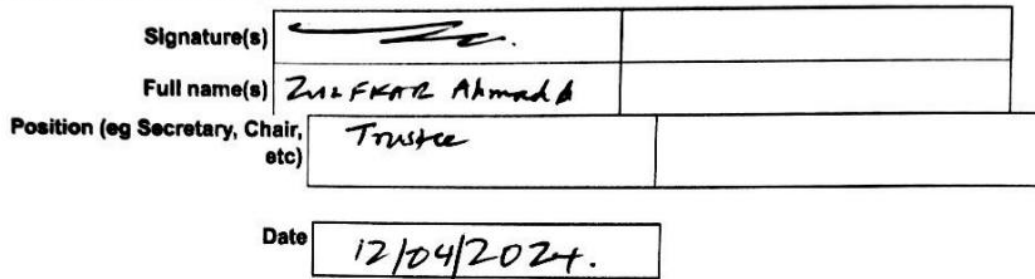 Signature(s)
Full name(s) ZULFKAR Ahmad
Position (eg Secretary, Chair,
etc) Trustee
Date 12/04/2024.